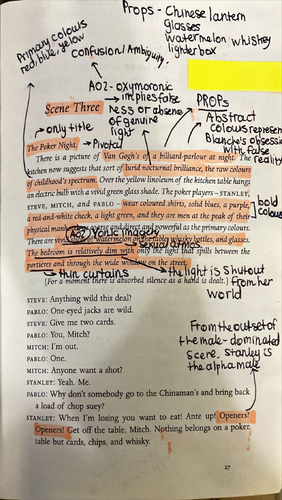 Props - Chinese lantern
glasses
watermelon whiskey
lighterbox
Primary colours
red, blue, yellow
confusion/Ambiguity.
AO2 - oxymoronic
implies false
ness or absence
of genuine
light
Scene Three
→ only title
PROPS
Abstract
colours represent
Blanche's obsession
with false
reality
The Poker Night. → Pivotal
There is a picture of Van Gogh's of a billiard-parlour at night. The
kitchen now suggests that sort of lurid nocturnal brilliance, the raw colours
of childhood's spectrum. Over the yellow linoleum of the kitchen table hangs
an electric bulb with a vivid green glass shade. The poker players – STANLEY,
STEVE, MITCH, and PABLO – wear coloured shirts, solid blues, a purple,
a red-and-white check, a light green, and they are men at the peak of their
bold
colours
physical man as coarse and direct and powerful as the primary colours.
Yonic imagery
There are vivid of watermelon on whisky bottles, and glasses.
sexual atmos
The bedroom is relatively dim with only the light that spills between the
portières and through the wide window on the street.
→ thin curtains
→ the light is shut out
from her
world
[For a moment there is absorbed silence as a hand is dealt.]
STEVE: Anything wild this deal?
PABLO: One-eyed jacks are wild.
STEVE: Give me two cards.
PABLO: You, Mitch?
MITCH: I'm out.
PABLO: One.
MITCH: Anyone want a shot?
STANLEY: Yeah. Me.
PABLO: Why don't somebody go to the Chinaman's and bring back
a load of chop suey?
From the outset of
the male-dominated
scene. Stanley is
the alpha male
STANLEY: When I'm losing you want to eat! Ante up! Openers?
Openers! Get off the table, Mitch. Nothing belongs on a poker
table but cards, chips, and whisky.
27